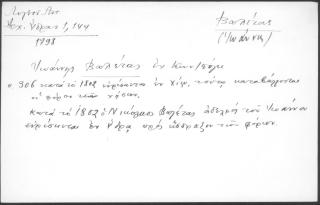 Λιγνού Αντ.
Αρχ. Ύδρας 1, 144
1798
Βαλέτας
(Ιωάννης)
Ιωάννης Βαλέτας εν Κων/πόλει
σ 306 κατά το 1802 ευρίσκεται εν Χίω, τούτω καταβάλλονται
οι φόροι των νήσων.
Κατά το 1802 ο Νικόλαος Βαλέτας αδελφός του Ιωάννου
ευρίσκεται εν Ύδρα προς είσπραξιν των φόρων.